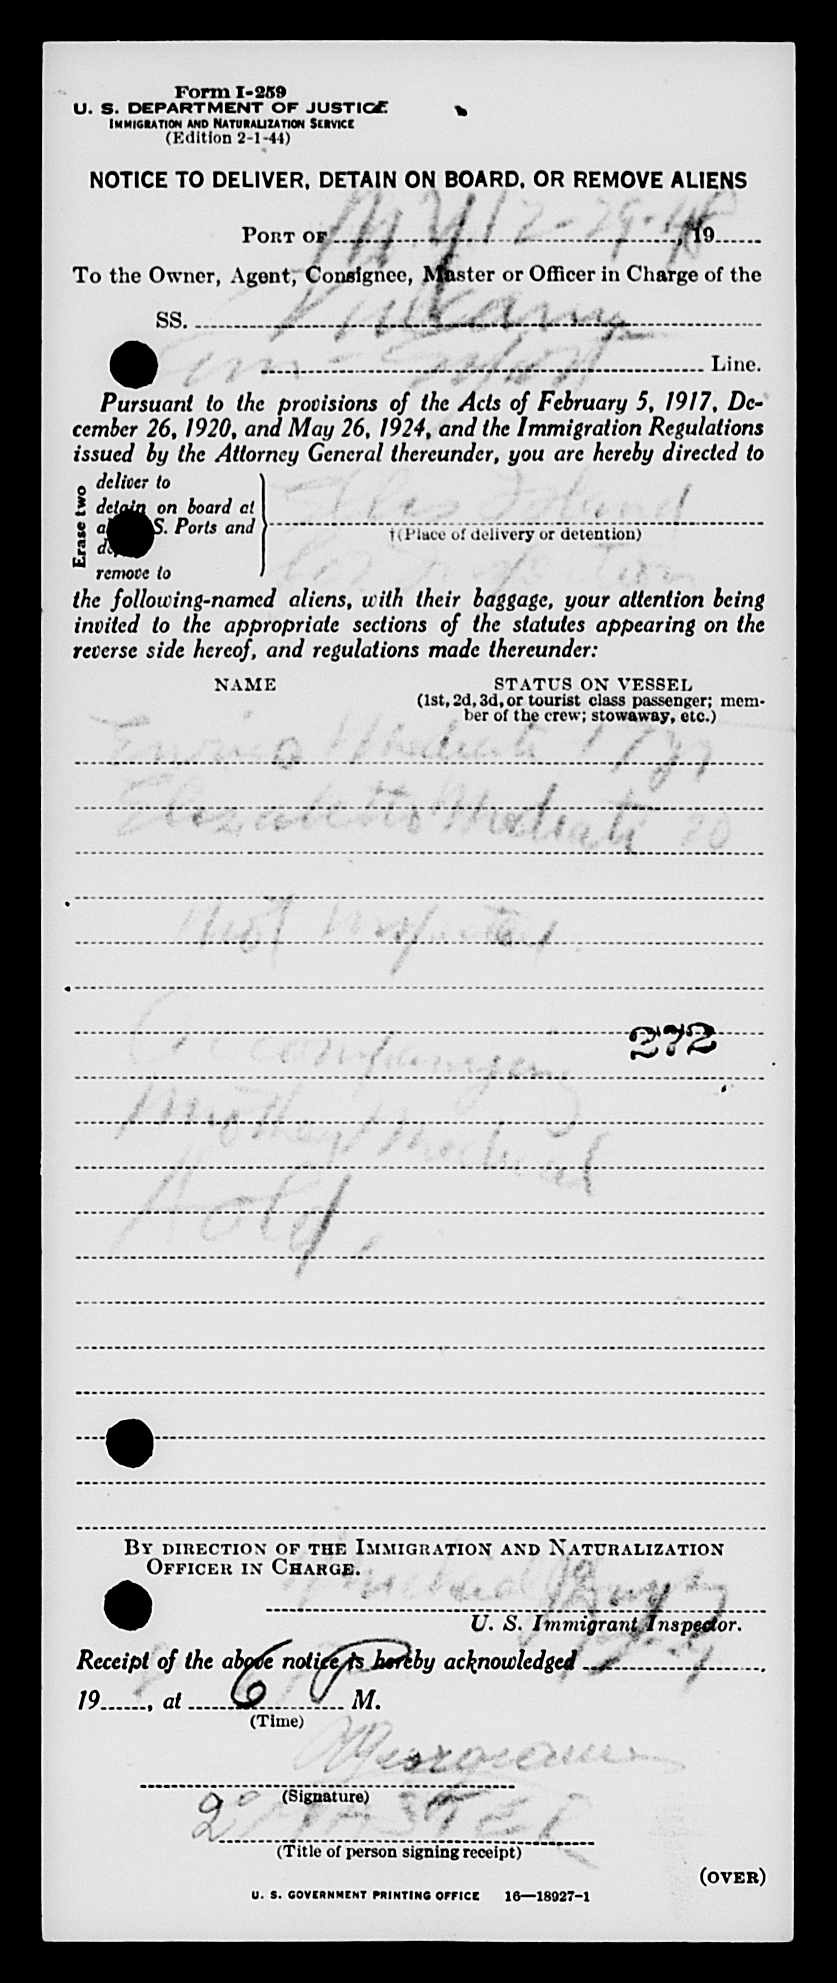 Form I-259
U. S. DEPARTMENT OF JUSTICE
IMMIGRATION AND NATURALIZATION SERVICE
(Edition 2-1-44)
NOTICE TO DELIVER, DETAIN ON BOARD, OR REMOVE ALIENS
PORT OF N Y 12-29-48, 19
To the Owner, Agent, Consignee, Master or Officer in Charge of the
SS. Vulcania
Am-Export Line.
Pursuant to the provisions of the Acts of February 5, 1917, De-
cember 26, 1920, and May 26, 1924, and the Immigration Regulations
issued by the Attorney General thereunder, you are hereby directed to
Erase two
deliver to
detain on board at
S. Ports and
remove to
Ellis Island
†(Place of delivery or detention)
for
the following-named aliens, with their baggage, your attention being
invited to the appropriate sections of the statutes appearing on the
reverse side hereof, and regulations made thereunder:
NAME STATUS ON VESSEL
(1st, 2d, 3d, or tourist class passenger; mem-
ber of the crew; stowaway, etc.)
Enrico Mediati
Elizabetta Mediati 20
Not Inspected
272
Accompanying
Mother Medical
Hold.
BY DIRECTION OF THE IMMIGRATION AND NATURALIZATION
OFFICER IN CHARGE.
Michael
U. S. Immigrant Inspector.
Receipt of the above notice is hereby acknowledged
19, at 6 P M.
(Time)
(Signature)
2° MASTER
(Title of person signing receipt)
(OVER)
U. S. GOVERNMENT PRINTING OFFICE 16—18927-1